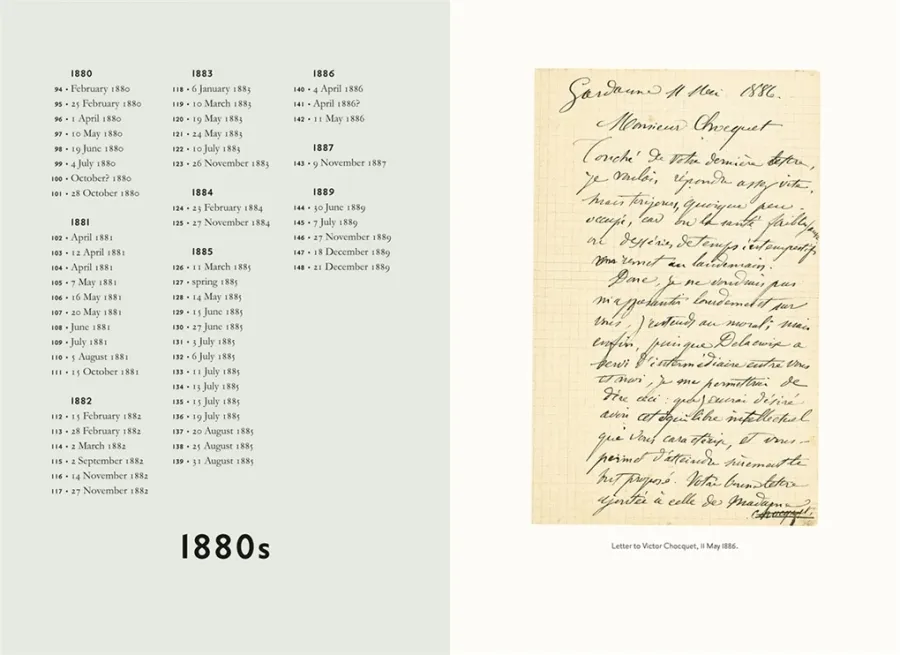 1880
94 • February 1880
95 • 25 February 1880
96 • 1 April 1880
97 • 10 May 1880
98 • 19 June 1880
99 • 4 July 1880
100 • October? 1880
101 • 28 October 1880
1881
102 • April 1881
103 • 12 April 1881
104 • April 1881
105 • 7 May 1881
106 • 16 May 1881
107 • 20 May 1881
108 • June 1881
109 • July 1881
110 • 5 August 1881
111 • 15 October 1881
1882
112 • 15 February 1882
113 • 28 February 1882
114 • 2 March 1882
115 • 2 September 1882
116 • 14 November 1882
117 • 27 November 1882
1883
118 • 6 January 1883
119 • 10 March 1883
120 • 19 May 1883
121 • 24 May 1883
122 • 10 July 1883
123 • 26 November 1883
1884
124 • 23 February 1884
125 • 27 November 1884
1885
126 • 11 March 1885
127 • spring 1885
128 • 14 May 1885
129 • 15 June 1885
130 • 27 June 1885
131 • 3 July 1885
132 • 6 July 1885
133 • 11 July 1885
134 • 13 July 1885
135 • 15 July 1885
136 • 19 July 1885
137 • 20 August 1885
138 • 25 August 1885
139 • 31 August 1885
1886
140 • 4 April 1886
141 • April 1886?
142 • 11 May 1886
1887
143 • 9 November 1887
1889
144 • 30 June 1889
145 • 7 July 1889
146 • 27 November 1889
147 • 18 December 1889
148 • 21 December 1889
1880s
Gardanne 11 Mai 1886.
Monsieur Chocquet
Touché de votre dernière lettre,
je voulais, répondre assez vite,
mais toujours, quoique peu
occupé, car ou la santé faiblit,
ou desséris, de temps intempestifs
vous remet au lendemain.
Donc, je ne voudrais pas
m'appesantir lourdement sur
vous, j'entends au moral; mais
enfin, puisque Delacroix a
servi d'intermédiaire entre vous
et moi, je me permettrai de
dire ceci: que j'eurai désiré
avoir cet équilibre intellectuel
que vous caractérise, et vous
permet d'atteindre sûrement le
but proposé. Votre bonne lettre
ajoutée à celle de Madame
Chocquet
Letter to Victor Chocquet, 11 May 1886.